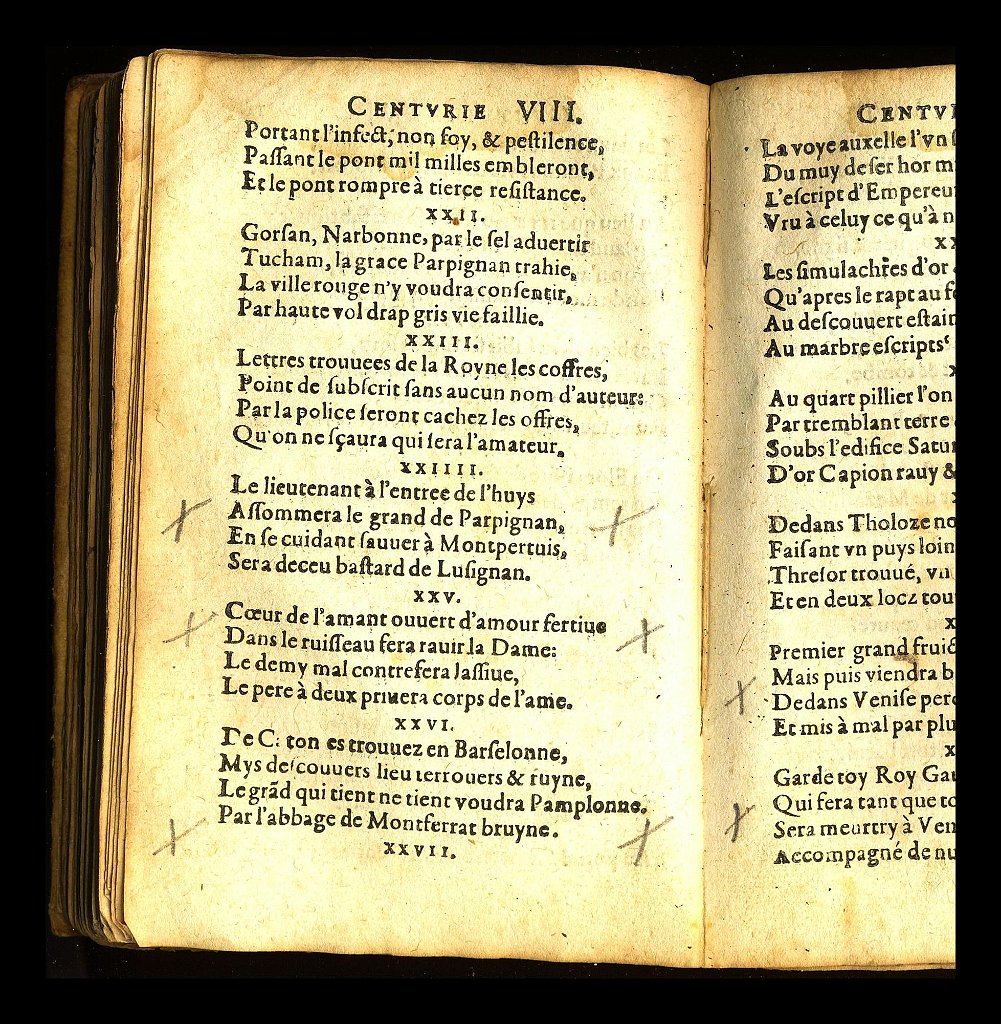 CENTVRIE VIII.
Portant l'infect, non foy, & peſtilence,
Paſſant le pont mil milles embleront,
Et le pont rompre à tierce reſiſtance.
XXII.
Gorſan, Narbonne, par le ſel aduertir
Tucham, la grace Parpignan trahie,
La ville rouge n'y voudra conſentir,
Par haute vol drap gris vie faillie.
XXIII.
Lettres trouuees de la Royne les coffres,
Point de ſubſcrit ſans aucun nom d'auteur:
Par la police ſeront cachez les offres,
Qu'on ne ſçaura qui ſera l'amateur.
XXIIII.
Le lieutenant à l'entree de l'huys
Aſſommera le grand de Parpignan,
En ſe cuidant ſauuer à Montpertuis,
Sera deceu baſtard de Luſignan.
XXV.
Cœur de l'amant ouuert d'amour fertiue
Dans le ruiſſeau fera rauir la Dame:
Le demy mal contrefera laſſiue,
Le pere à deux priuera corps de l'ame.
XXVI.
De C ton es trouuez en Barſelonne,
Mys deſcouuers lieu terrouers & ruyne,
Le grãd qui tient ne tient voudra Pamplonne.
Par l'abbage de Montferrat bruyne.
XXVII.
CENTV
La voye auxelle l'vn
Du muy de ſer hor m
L'eſcript d'Empereu
Vru à celuy ce qu'à n
XX
Les ſimulachres d'or
Qu'apres le rapt au f
Au deſcouuert eſtain
Au marbre eſcripts
X
Au quart pillier l'on
Par tremblant terre
Soubs l'edifice Satur
D'or Capion rauy &
Dedans Tholoze no
Faiſant vn puys loin
Threſor trouué, vn
Et en deux locz tou
X
Premier grand fruic
Mais puis viendra b
Dedans Veniſe per
Et mis à mal par plu
X
Garde toy Roy Gau
Qui fera tant que to
Sera meurtry à Ven
Accompagné de nu